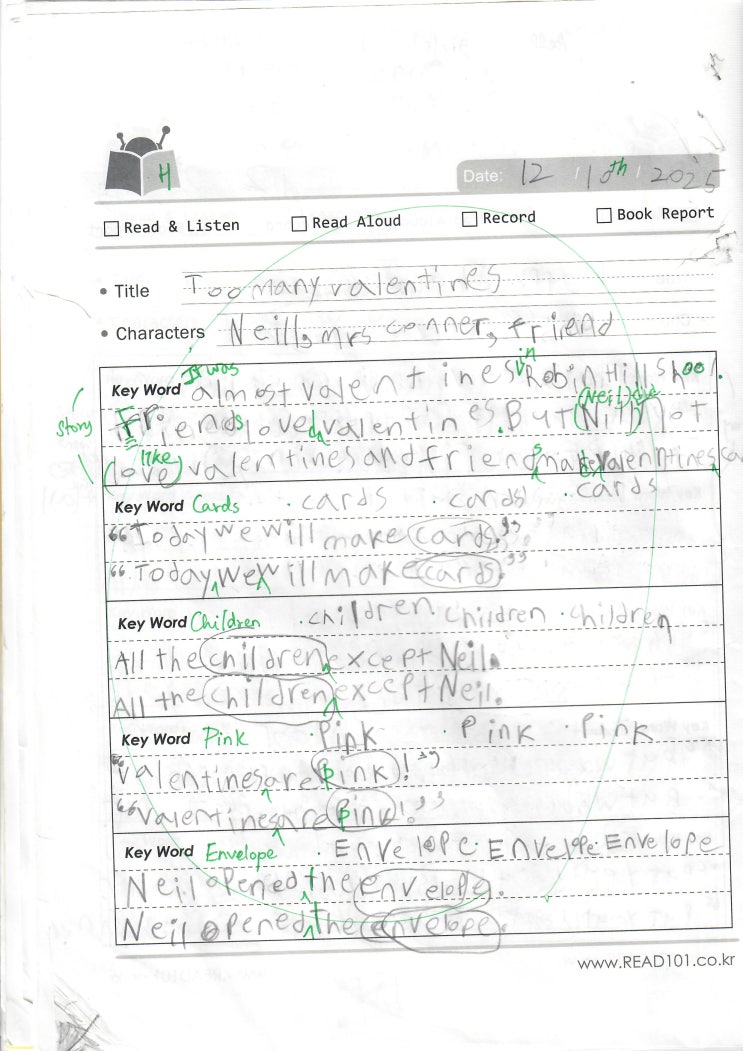 H
Date: 12 / 10th / 2025
Read & Listen Read Aloud Record Book Report
• Title Too many valentines
• Characters Neill, mrs conner, friend
It was in
Key Word almost valentines Robin Hill shool.
(Neil) did
story Friends loved valentines. But (Nill) not
like
(love) valentines and friends make valentines
Key Word Cards · cards · cards · cards
"Today we will make cards."
"Today we will make cards."
Key Word Children · children children · children
All the children except Neil.
All the children except Neil.
Key Word Pink · Pink · Pink · Pink
"valentines are Pink!"
"valentines are Pink!"
Key Word Envelope · Envelope · Envelope · Envelope
Neil opened the envelope.
Neil opened the envelope.
www.READ101.co.kr